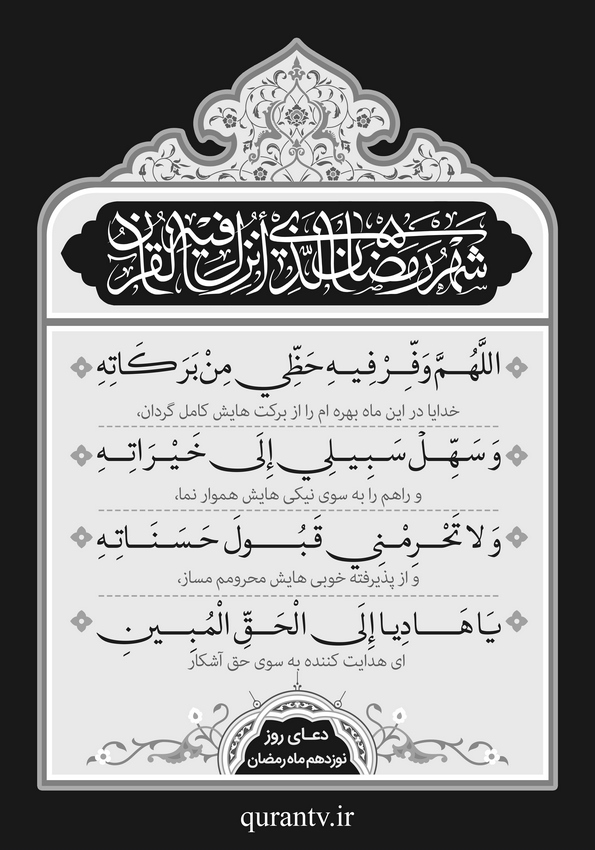 شَهْرُ رَمَضَانَ الَّذِي أُنْزِلَ فِيهِ الْقُرْآن
اللَّهُمَّ وَفِّرْ فِيهِ حَظِّي مِنْ بَرَكَاتِهِ
خدایا در این ماه بهره ام را از برکت هایش کامل گردان،
وَ سَهِّلْ سَبِيلِي إِلَى خَيْرَاتِهِ
و راهم را به سوی نیکی هایش هموار نما،
وَ لا تَحْرِمْنِي قَبُولَ حَسَنَاتِهِ
و از پذیرفته خوبی هایش محرومم مساز،
يَا هَادِيا إِلَى الْحَقِّ الْمُبِينِ
ای هدایت کننده به سوی حق آشکار
دعای روز
نوزدهم ماه رمضان
qurantv.ir